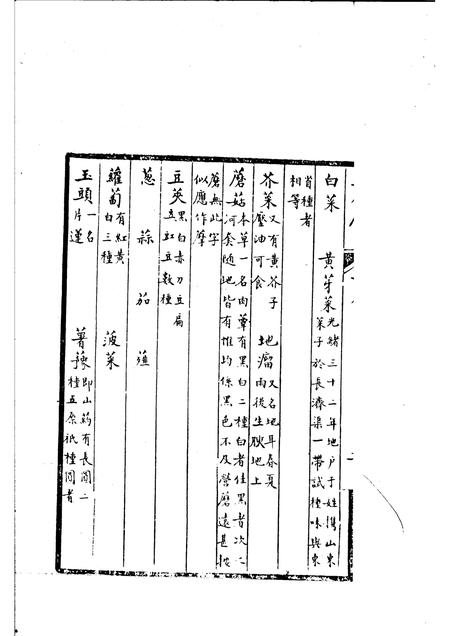 白菜　黃芽菜　光緒三十二年地戶于姓攜山東
菜子於長濟渠一帶試種味與東
省種者
相等
芥菜　又有黃芥子
壓油可食　地瘤　又名地耳春夏
雨後生腴地上
蘑菇　本草一名肉蕈有黑白二種白者佳黑者次之
河套隨地皆有惟均係黑色不及營蘑遠甚按
蘑無此字
似應作摩
豆莢　黑白赤刀豆扁
豆豇豆數種
葱　蒜　茄
蘿蔔　有紅黃
白三種　菠菜
玉頭　一名
片蓮　薯蕷　即山葯有長圓二
種五原祇種圓者